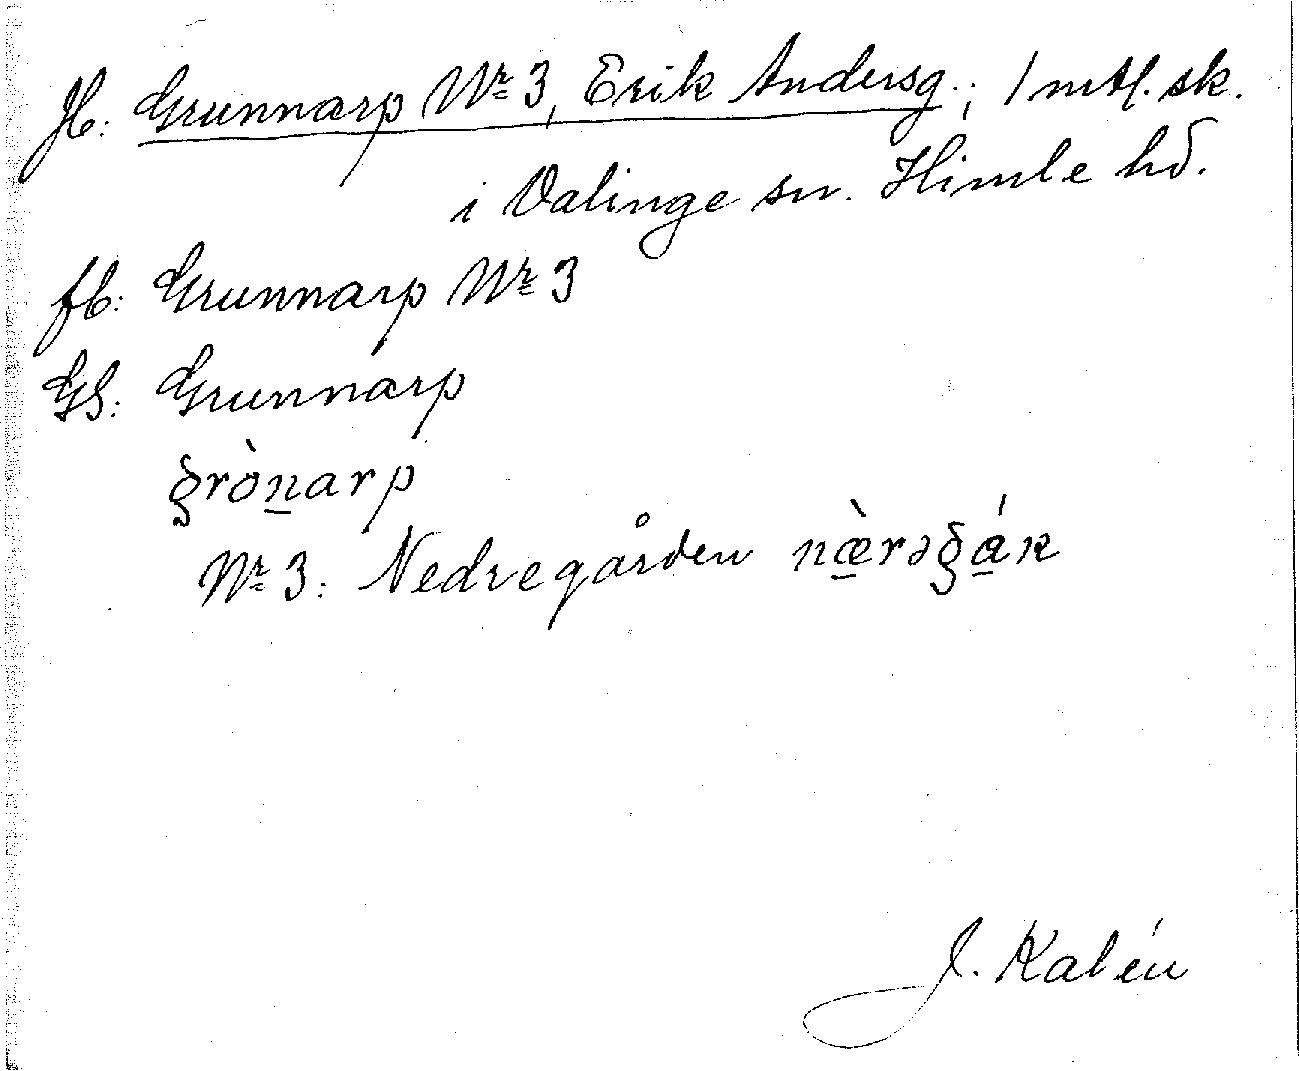 Jb: Grunnarp Nr 3, Erik Andersg.; 1 mtl. sk.
i Valinge sn. Himle hd.
fb: Grunnarp Nr 3
GS: Grunnarp
gròn̲arp
Nr 3: Nedregården næ̲̀rəgá̲n
J. Kalén